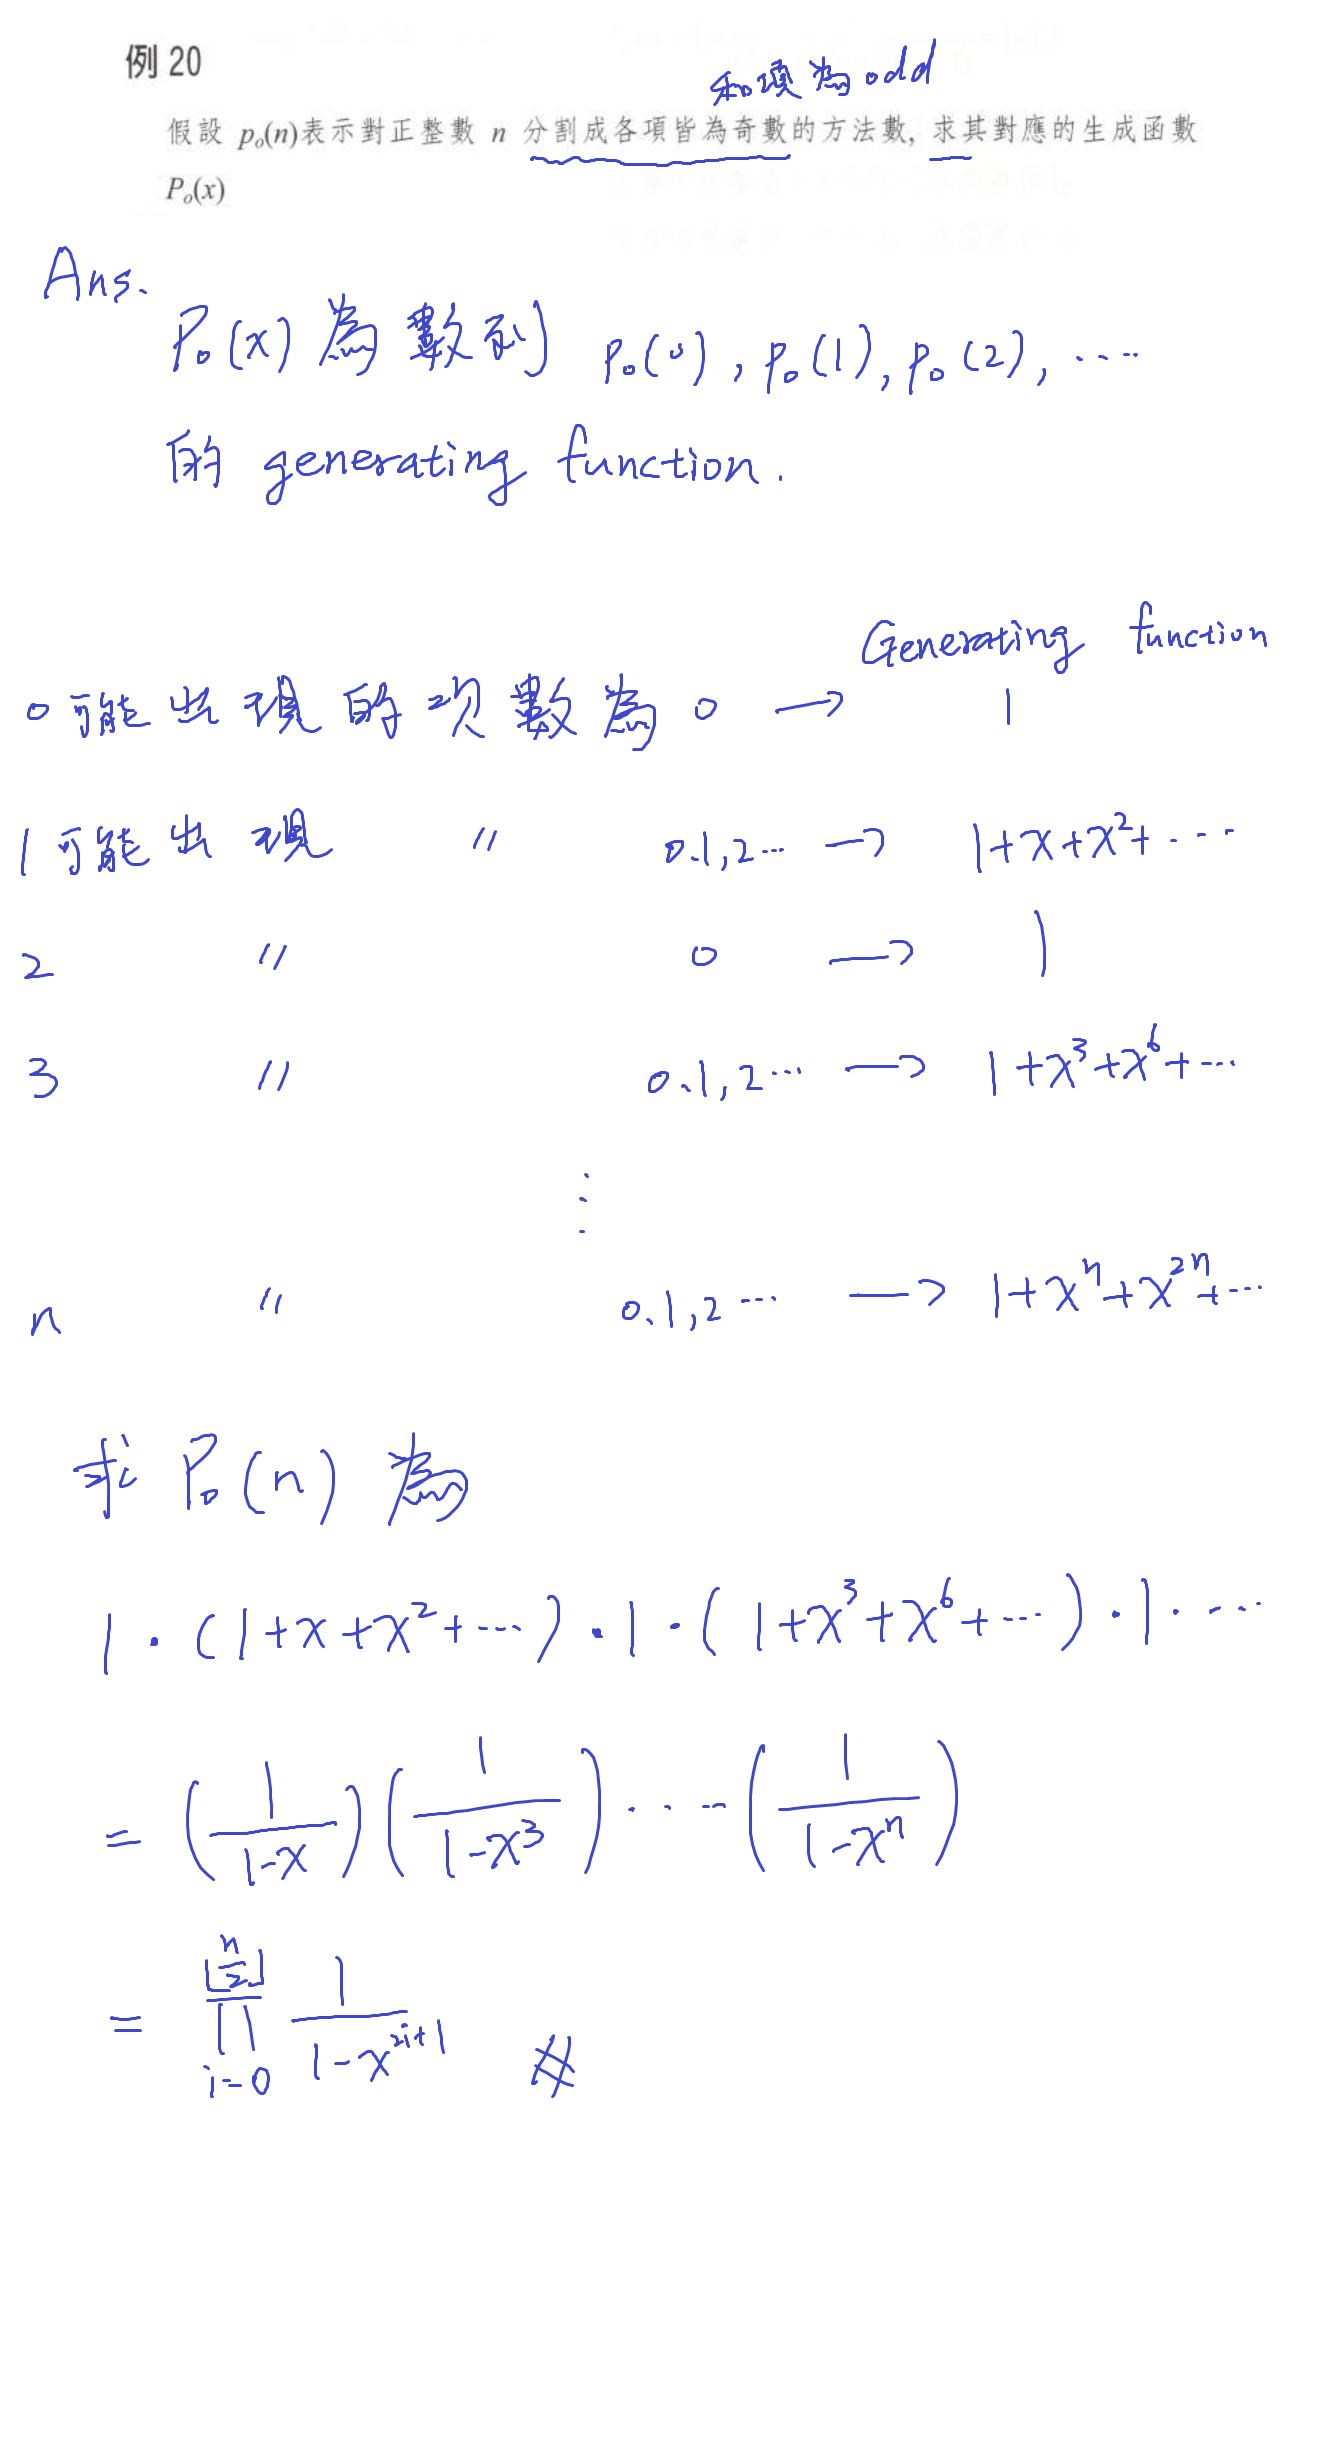 例 20
和項為odd
假設 pₒ(n)表示對正整數 n 分割成各項皆為奇數的方法數, 求其對應的生成函數
Pₒ(x)
Ans.
Pₒ(x) 為 數列 pₒ(0), pₒ(1), pₒ(2), ....
的 generating function.
Generating function
0 可能出現的項數為 0 → 1
1 可能出現 〃 0.1,2... → 1+x+x²+....
2 〃 0 → 1
3 〃 0.1,2... → 1+x³+x⁶+...
⋮
n 〃 0.1,2... → 1+xⁿ+x²ⁿ+...
求 Pₒ(n) 為
1·(1+x+x²+...)·1·(1+x³+x⁶+...)·1·...
= (1/(1-x))(1/(1-x³))....(1/(1-xⁿ))
= ∏_{i=0}^{⌊n/2⌋} 1/(1-x^{2i+1}) #